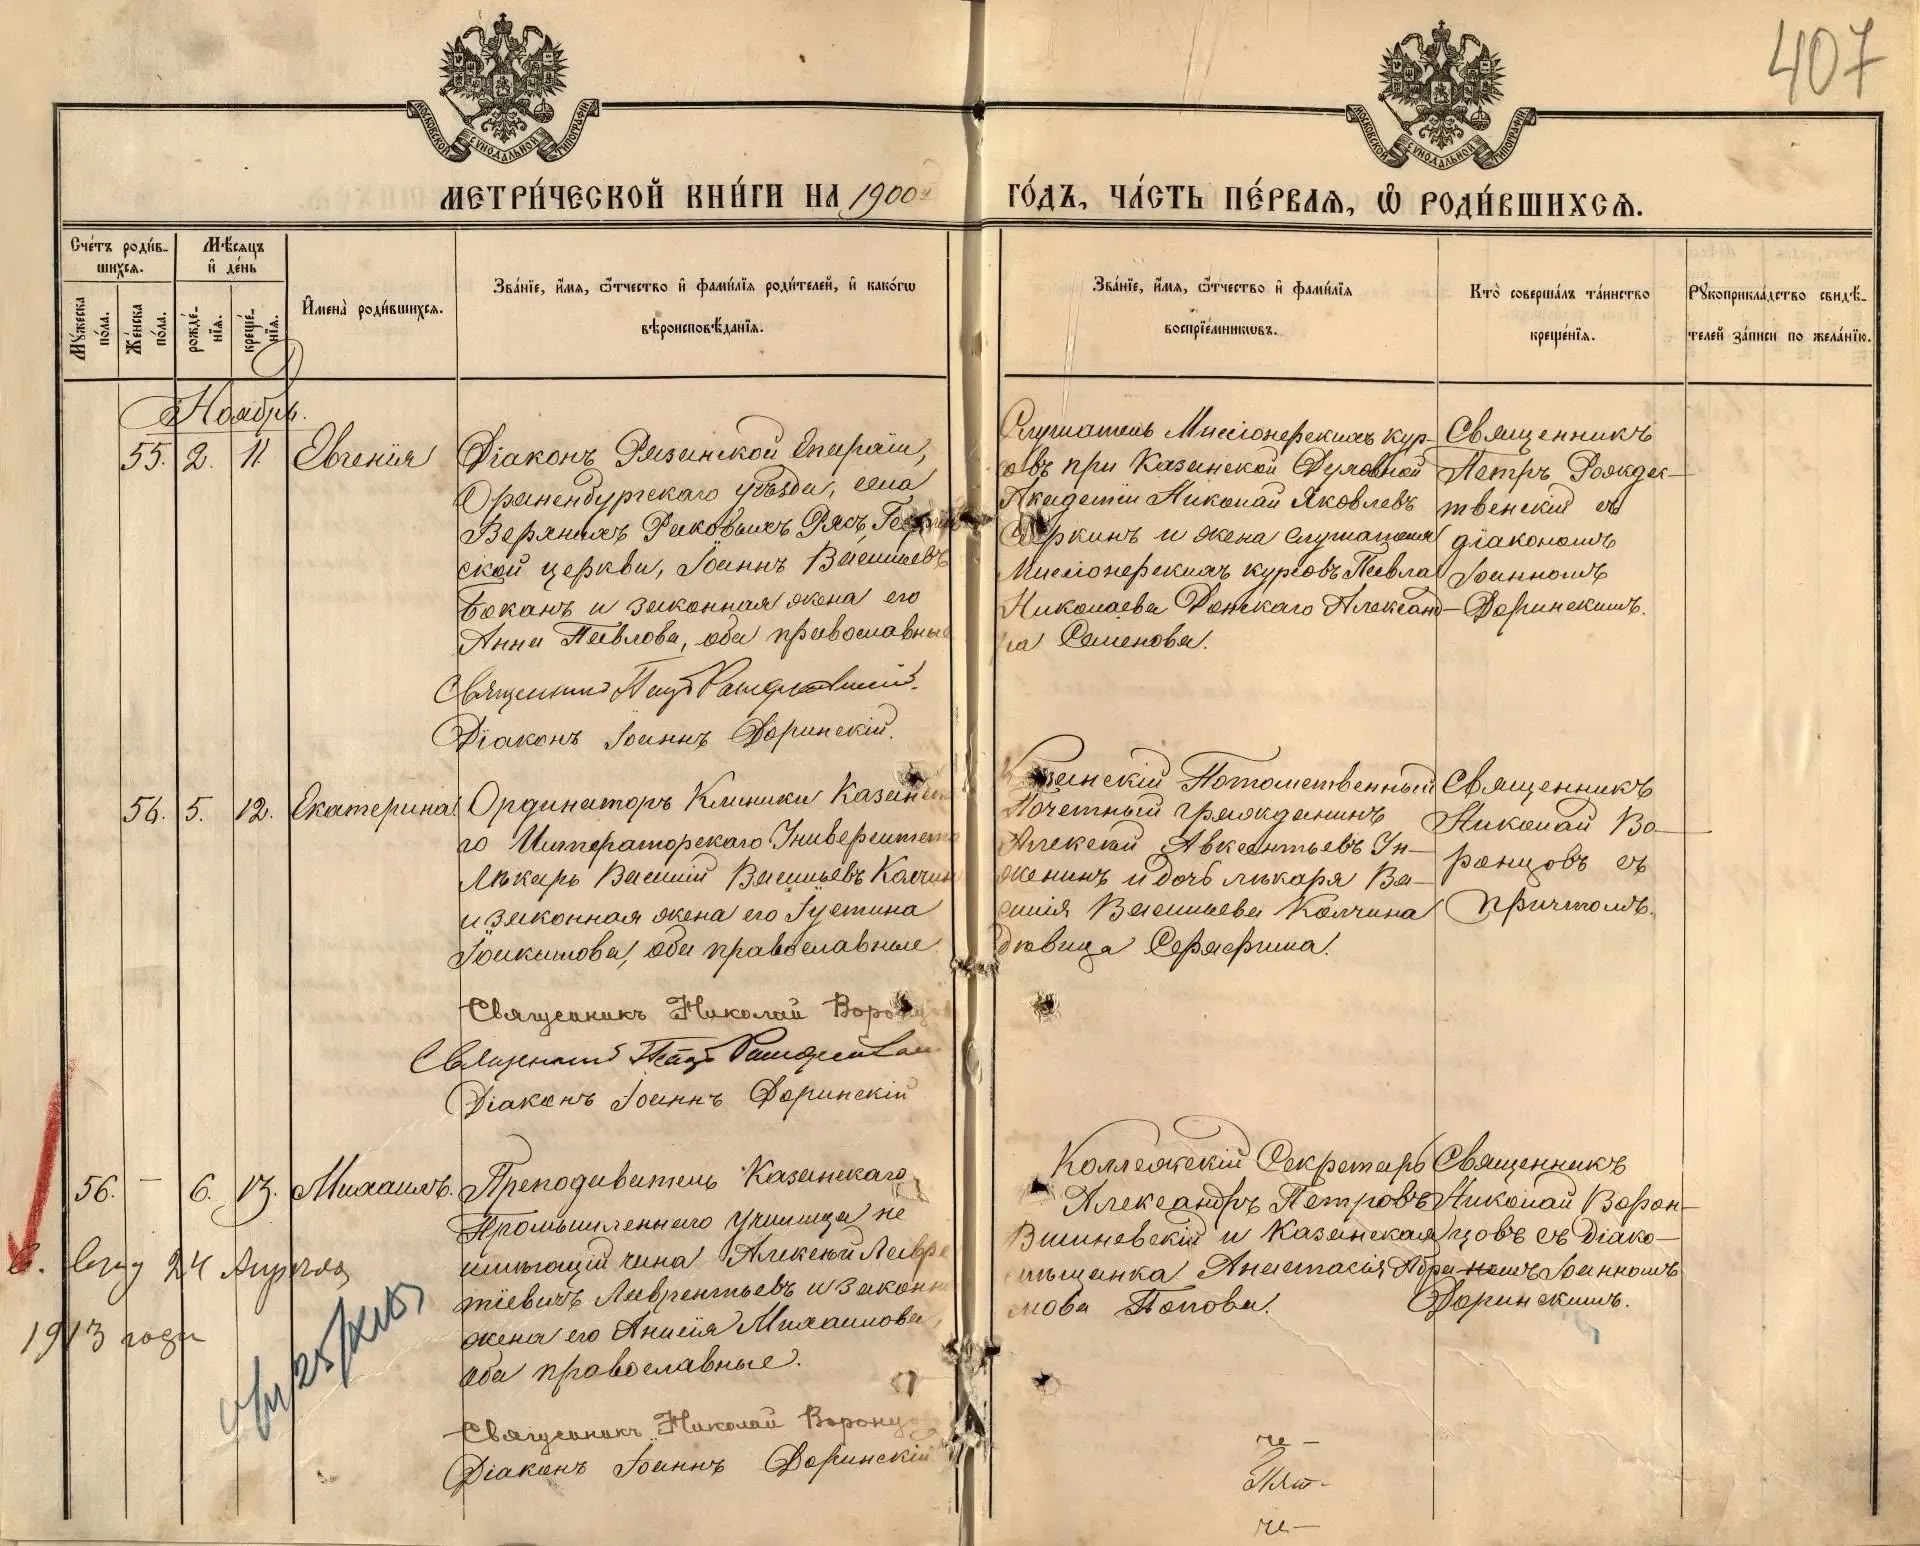 407
МОСКОВСКОЙ СѴНОДАЛЬНОЙ ТИПОГРАФІИ
МОСКОВСКОЙ СѴНОДАЛЬНОЙ ТИПОГРАФІИ
МЕТРИ́ЧЕСКОЙ КНИ́ГИ НА 1900й
ГО́ДЪ, ЧА́СТЬ ПЕ́РВАѦ, Ѡ РОДИ́ВШИХСѦ.
Сче́тъ роди́в-
шихсѧ.
Мѣ́сѧцъ
и҆ де́нь
Мꙋ́жеска
по́ла.
Же́нска
по́ла.
рожде́-
нїѧ.
креще́-
нїѧ.
И҆мена̀ роди́вшихсѧ.
Зва́нїе, и҆́мѧ, ѻ҆́тчество и҆ фами́лїѧ роди́телей, и҆ како́гѡ
вѣроисповѣ́данїѧ.
Зва́нїе, и҆́мѧ, ѻ҆́тчество и҆ фами́лїѧ
воспрїе́мникѡвъ.
Кто̀ соверша́лъ та́инство
креще́нїѧ.
Рꙋкоприкла́дство свидѣ́-
телей за́писи по жела́нїю.
Ноябрь.
55. 2. 11. Евгенія
Діаконъ Рязанской Епархіи,
Раненбургскаго уѣзда, села
Верхнихъ Раковыхъ Рясъ
ской церкви, Іоаннъ Васильевъ
и законная жена его
Анна Павлова, оба православные
Священникъ Петръ Рождественскій.
Діаконъ Іоаннъ Доринскій.
Слушатель Миссіонерскихъ кур-
совъ при Казанской Духовной
Академіи Николай Яковлевъ
и жена слушателя
Миссіонерскихъ курсовъ Павла
Николаева Донскаго Александ-
ра Семенова.
Священникъ
Петръ Рождес-
твенскій съ
діакономъ
Іоанномъ
Доринскимъ.
56. 5. 12. Екатерина.
Ординаторъ Клиники Казанска
го Императорскаго Университета
Лѣкарь Василій Васильевъ Колчин
и законная жена его Іустина
Іоакимова, оба православные
Священникъ Николай Воронцов
Священникъ Петръ Рождественск
Діаконъ Іоаннъ Доринскій
Казанскій Потомственный
Почетный гражданинъ
Алексѣй Авксентьевъ Ин-
женинъ и дочь лѣкаря Ва-
силія Васильева Колчина
дѣвица Серафима.
Священникъ
Николай Во-
ронцовъ съ
причтомъ.
56. - 6. 13. Михаилъ.
Преподаватель Казанскаго
Промышленнаго училища не
имѣющій чина Алексѣй Лавре
тіевичъ Лаврентьевъ и законн
жена его Анисія Михаилова,
оба православные.
Священникъ Николай Воронцов
Діаконъ Іоаннъ Доринскій
Коллежскій Секретарь
Александръ Петровъ
Вишневскій и Казанская
мѣщанка Анастасія Абра-
мова Попова.
Священникъ
Николай Ворон-
цовъ съ діако-
номъ Іоанномъ
Доринскимъ.
24 Апрѣля
1913 года
че-
Пят-
че-